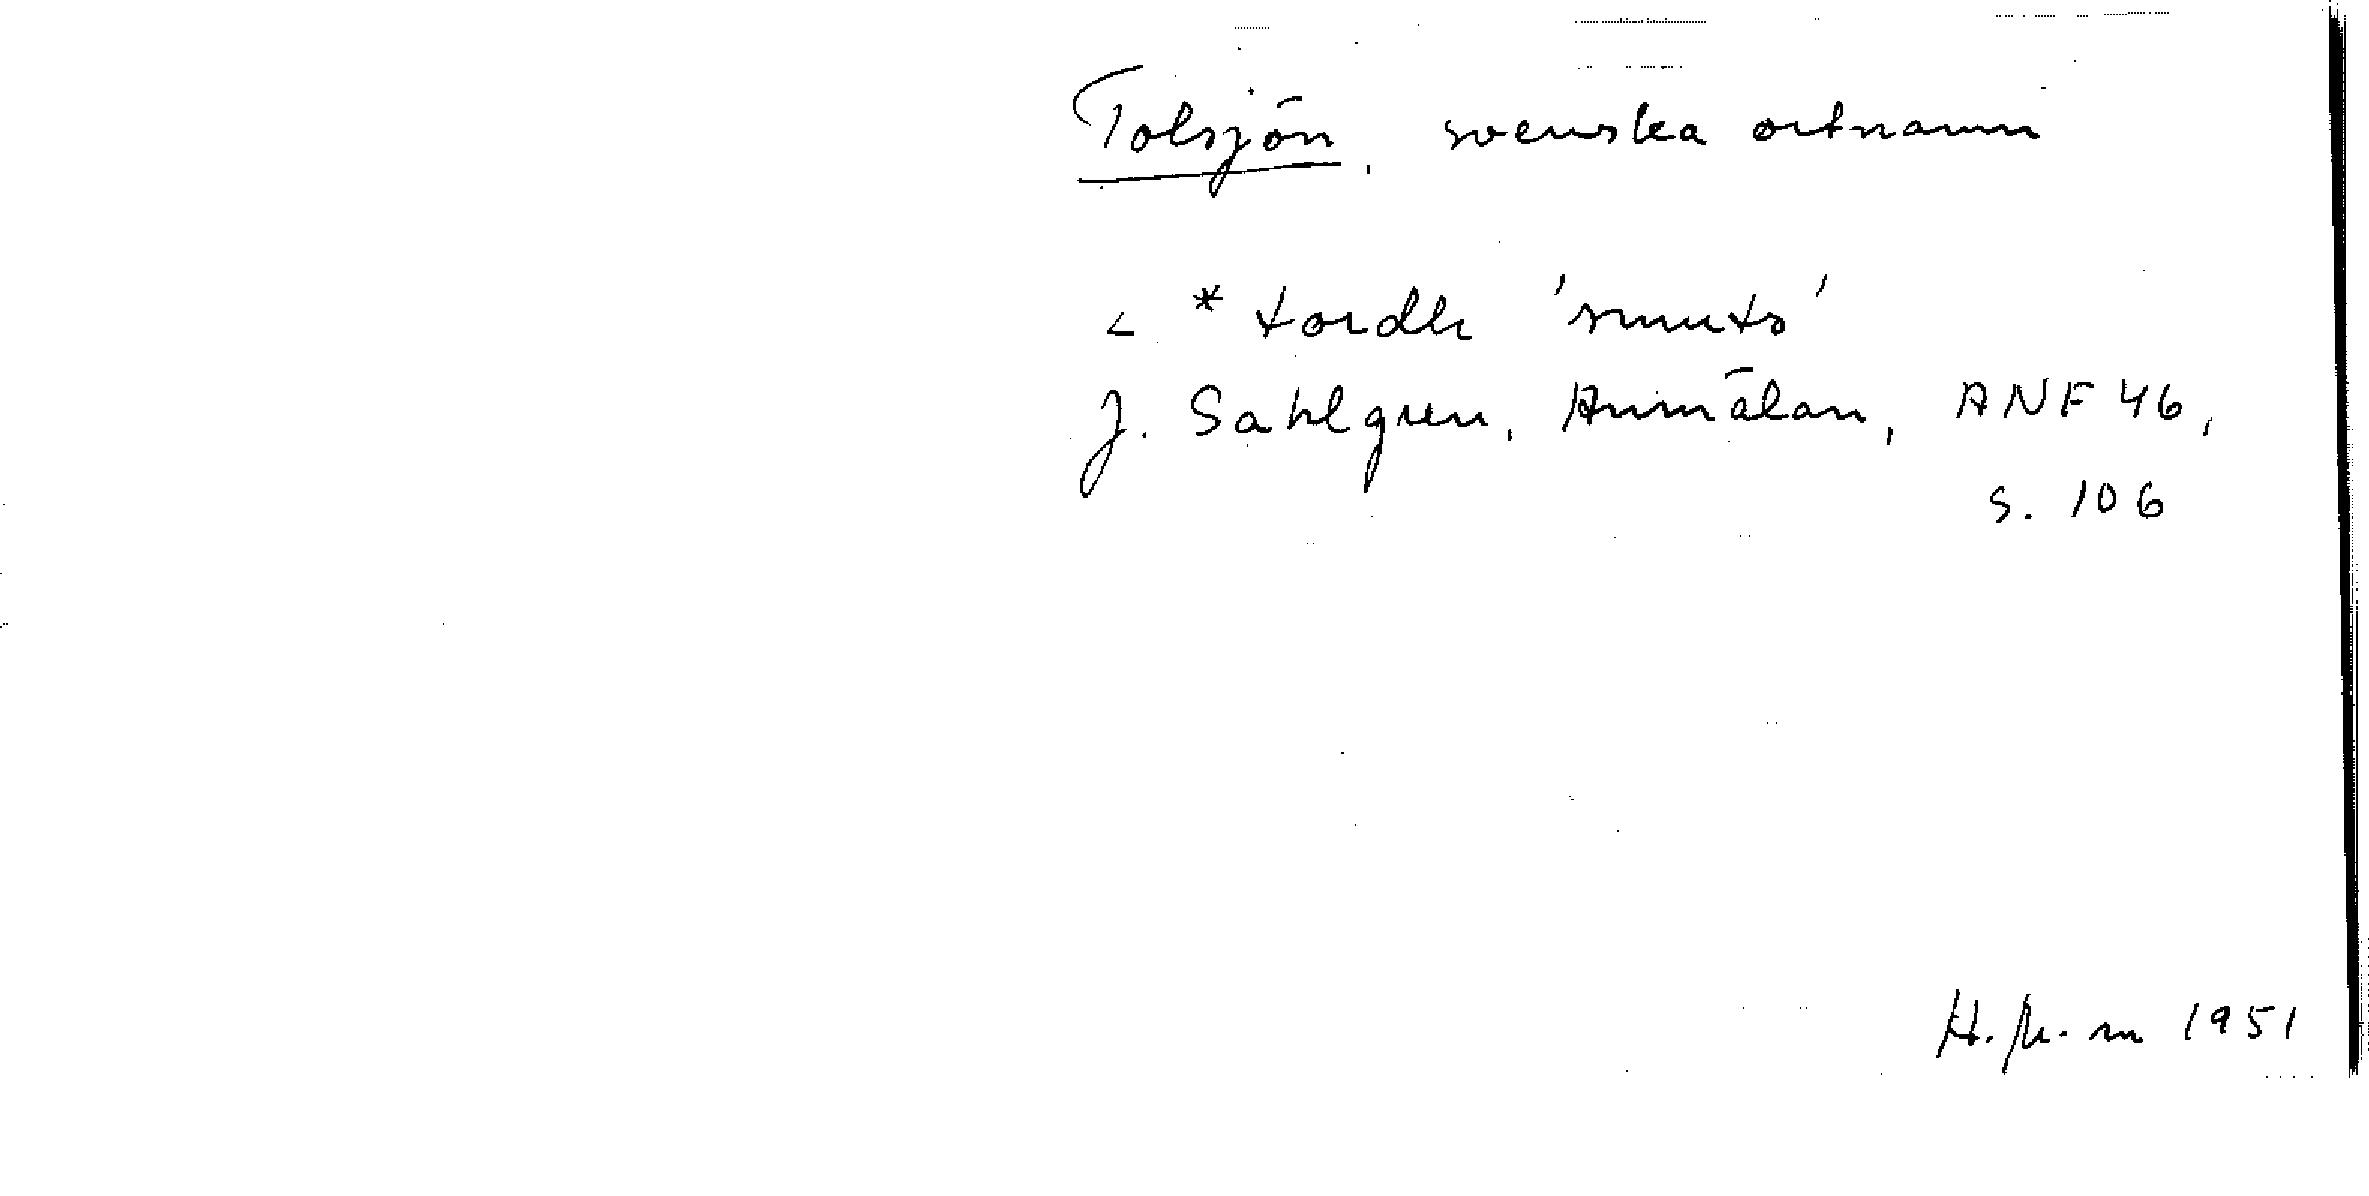 Tolsjön, svenska ortnamn
< * tordh 'smuts'
J. Sahlgren, Anmälan, ANF 46,
s. 106
H. 1951